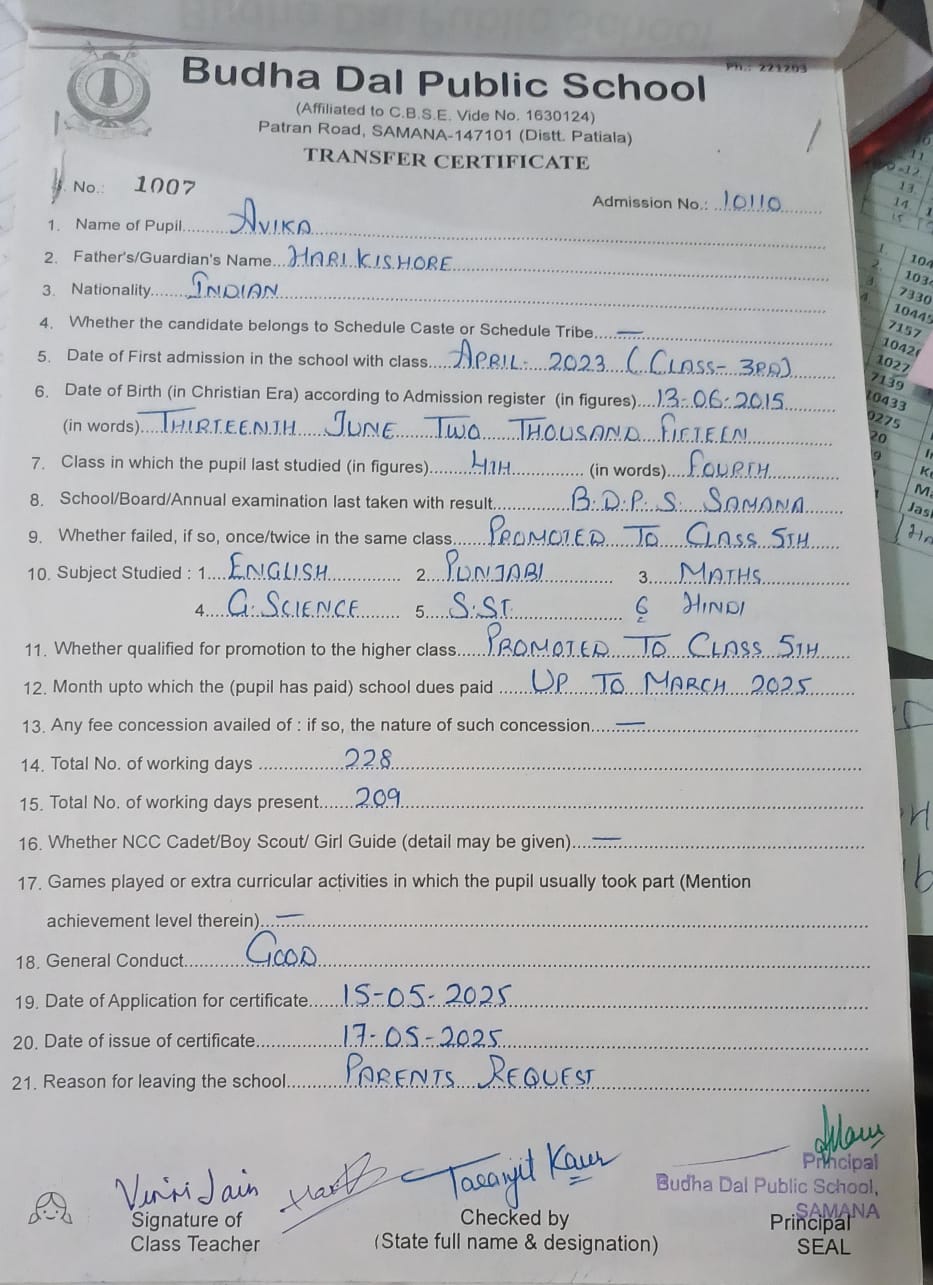 Budha Dal Public School
Ph.: 221203
(Affiliated to C.B.S.E. Vide No. 1630124)
Patran Road, SAMANA-147101 (Distt. Patiala)
TRANSFER CERTIFICATE
No.: 1007
Admission No.: 10110
1. Name of Pupil AVIKA
2. Father's/Guardian's Name HARI KISHORE
3. Nationality INDIAN
4. Whether the candidate belongs to Schedule Caste or Schedule Tribe —
5. Date of First admission in the school with class APRIL - 2023 (CLASS- 3RD)
6. Date of Birth (in Christian Era) according to Admission register (in figures) 13-06-2015
(in words) THIRTEENTH JUNE TWO THOUSAND FIFTEEN
7. Class in which the pupil last studied (in figures) 4TH (in words) FOURTH
8. School/Board/Annual examination last taken with result B.D.P.S. SAMANA
9. Whether failed, if so, once/twice in the same class PROMOTED TO CLASS 5TH
10. Subject Studied : 1 ENGLISH 2 PUNJABI 3 MATHS
4 G. SCIENCE 5 S.ST. 6 HINDI
11. Whether qualified for promotion to the higher class PROMOTED TO CLASS 5TH
12. Month upto which the (pupil has paid) school dues paid UP TO MARCH 2025
13. Any fee concession availed of : if so, the nature of such concession —
14. Total No. of working days 228
15. Total No. of working days present 209
16. Whether NCC Cadet/Boy Scout/ Girl Guide (detail may be given) —
17. Games played or extra curricular activities in which the pupil usually took part (Mention
achievement level therein) —
18. General Conduct GOOD
19. Date of Application for certificate 15-05-2025
20. Date of issue of certificate 17-05-2025
21. Reason for leaving the school PARENTS REQUEST
Jain Kaur
Principal
Budha Dal Public School,
SAMANA
Signature of Checked by Principal
Class Teacher (State full name & designation) SEAL
104
103
7330
10445
7157
1042
1027
7139
10433
0275
20
9